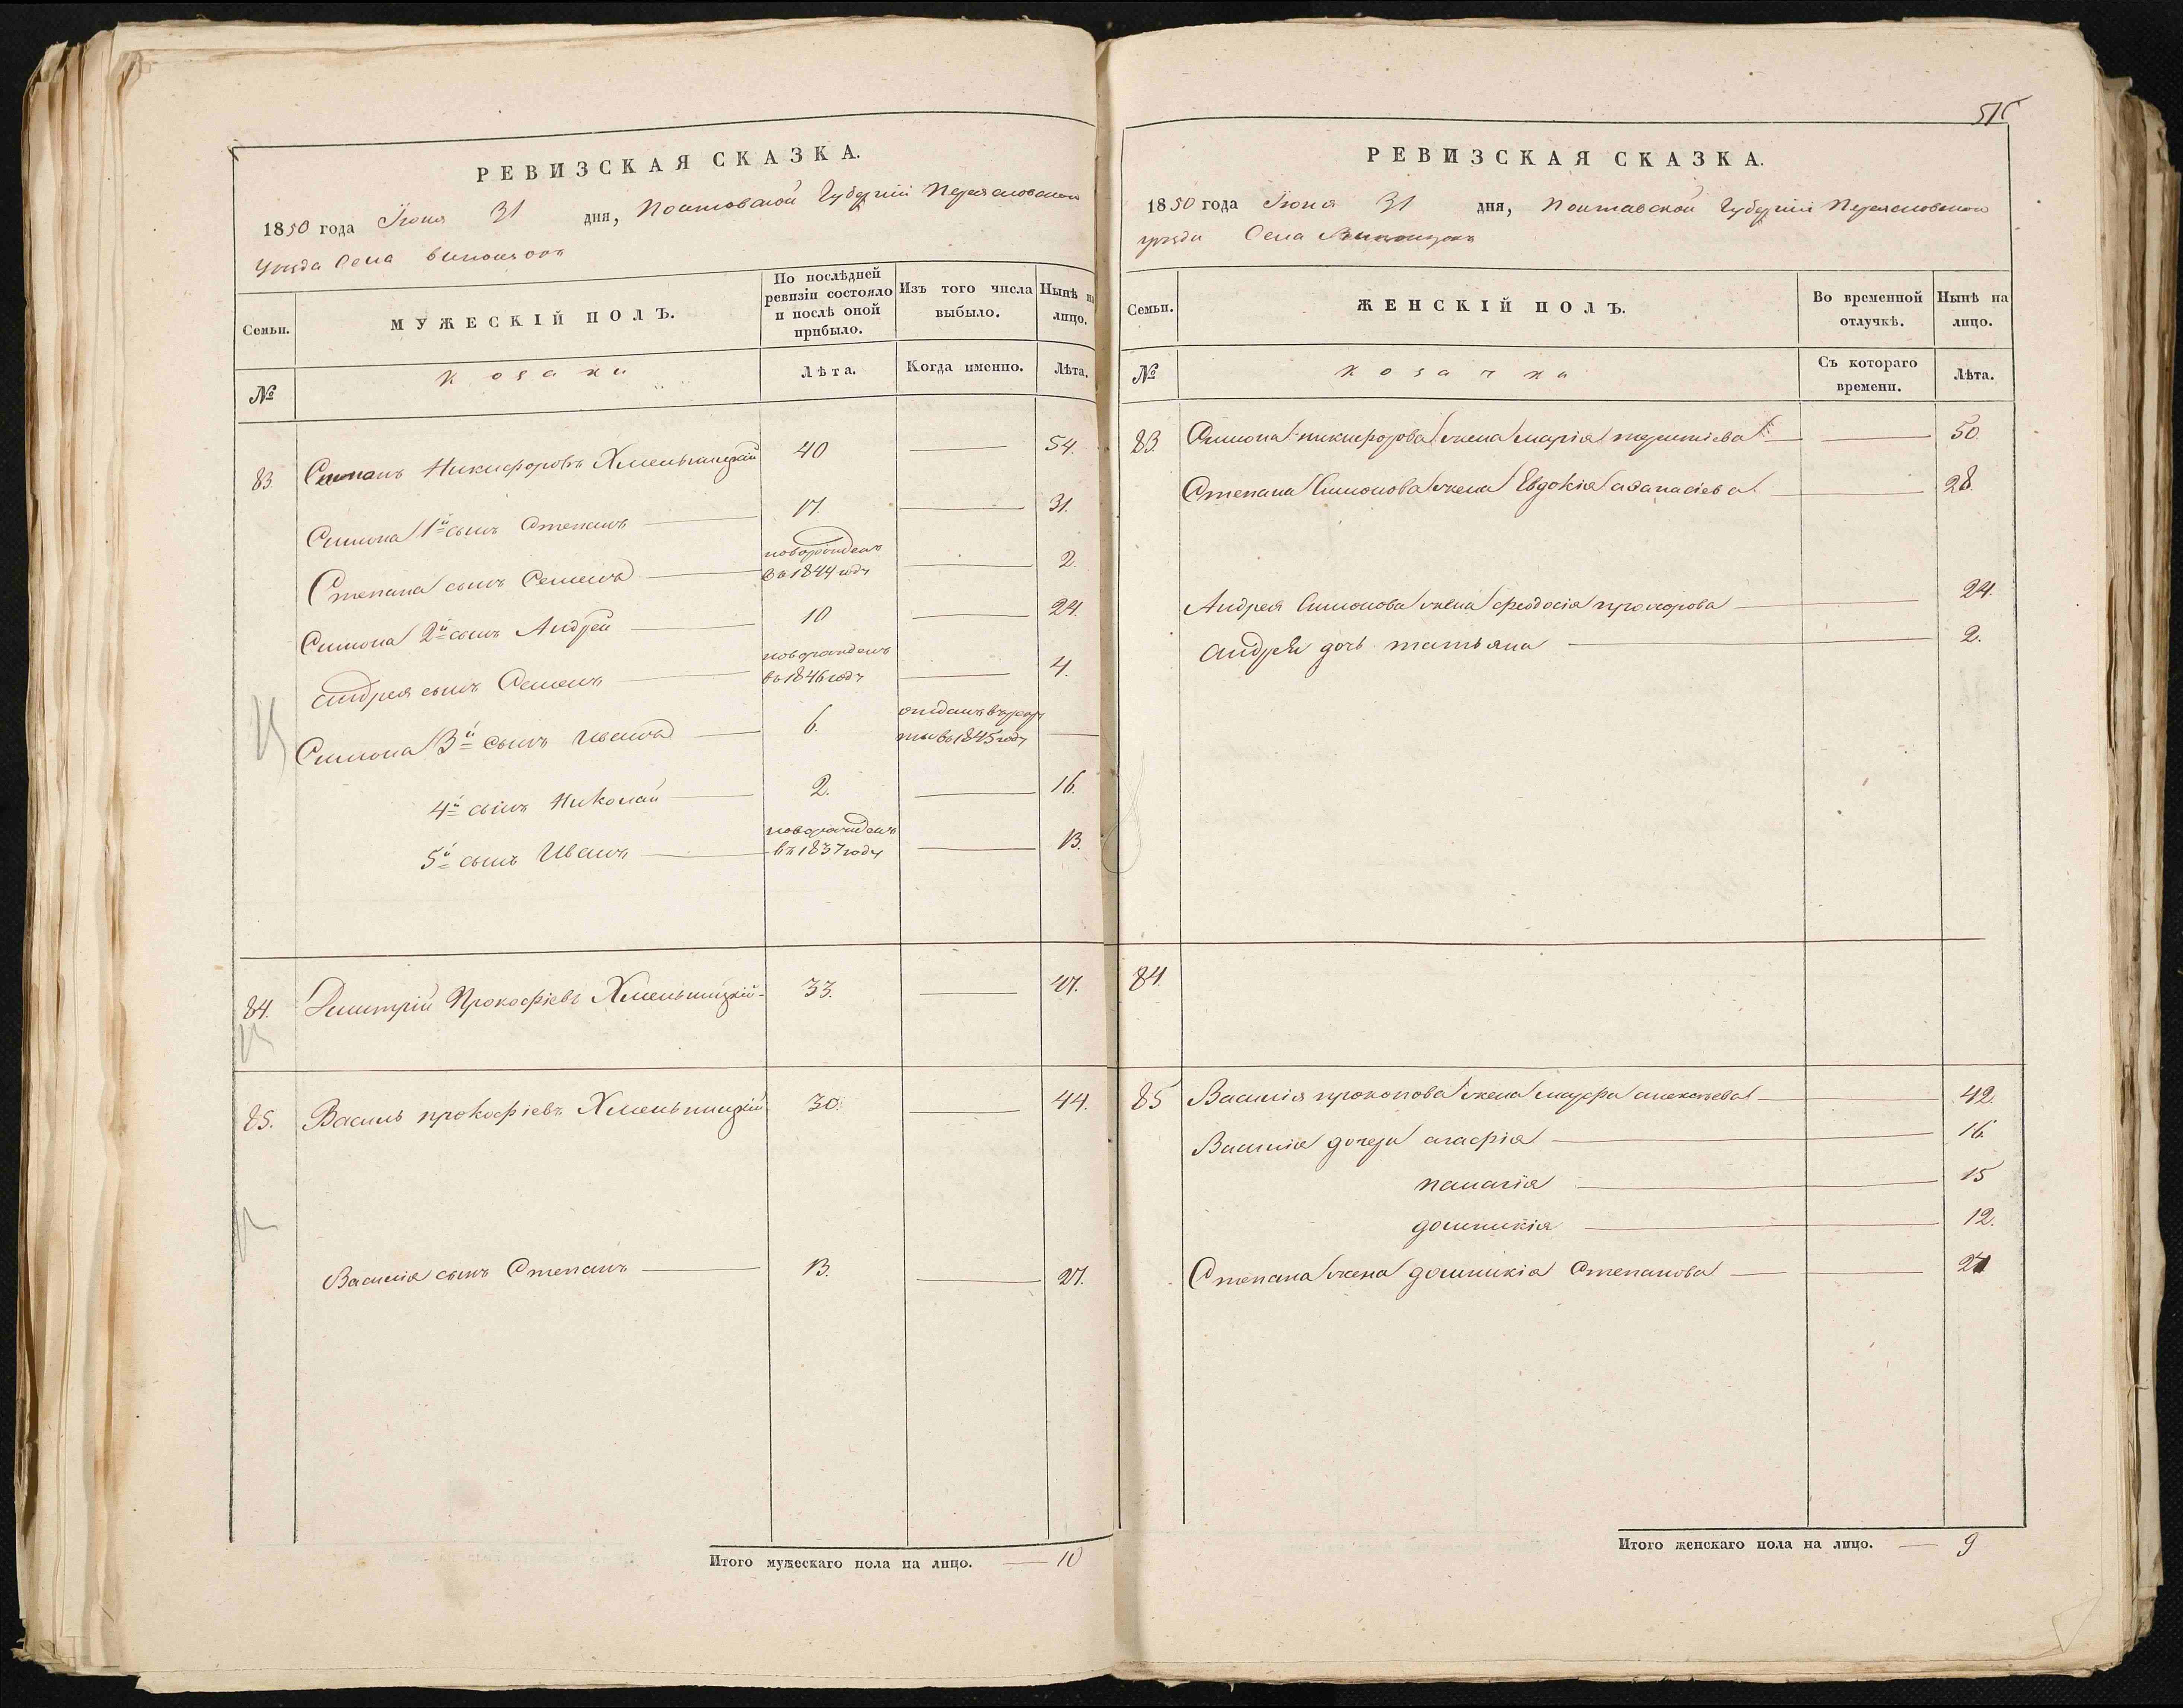 РЕВИЗСКАЯ СКАЗКА.
1850 года Іюня 31 дня, Полтовской Губерніи Переясловского
уезда Села
Семьи.
МУЖЕСКІЙ ПОЛЪ.
По послѣдней ревизіи состояло и послѣ оной прибыло.
Изъ того числа выбыло.
Нынѣ на лицо.
№
козаки
Лѣта.
Когда именно.
Лѣта.
83. Никифоровъ Хмельницкій 40 — 54.
Симона 1й сынъ Степанъ — 17. — 31.
Степана сынъ Семенъ — новорожденъ въ 1844 году — 2.
Симона 2й сынъ Андрей — 10 — 24.
андрея сынъ Семенъ — новорожденъ въ 1846 году — 4.
Симона 3й сынъ Иванъ — 6. отданъ въ рекруты въ 1845 году —
4й сынъ Николай — 2. — 16.
5й сынъ Иванъ — новорожденъ въ 1837 году — 13.
84. Димитрій Прокофіевъ Хмельницкій - 33. — 47.
85. Василь прокофіевъ Хмельницкій 30. — 44.
Василія сынъ Степанъ — 13. — 27.
Итого мужескаго пола на лицо. — 10
515
РЕВИЗСКАЯ СКАЗКА.
1850 года Іюня 31 дня, Полтавской Губерніи Переясловского
уезда Села
Семьи.
ЖЕНСКІЙ ПОЛЪ.
Во временной отлучкѣ.
Нынѣ на лицо.
№
козачки
Съ котораго времени.
Лѣта.
83. Симона никифорова жена марія — — 50.
Степана Симонова жена Евдокія аѳанасіева — 28.
Андрея Симонова жена феодосія прохорова — 24.
андрея дочь татьяна — 2.
84.
85 Василія прокопова жена марфа алексѣева — 42.
Василія дочери агафія — 16.
палагія — 15
домникія — 12.
Степана жена домникія Степанова — — 27
Итого женскаго пола на лицо. — 9